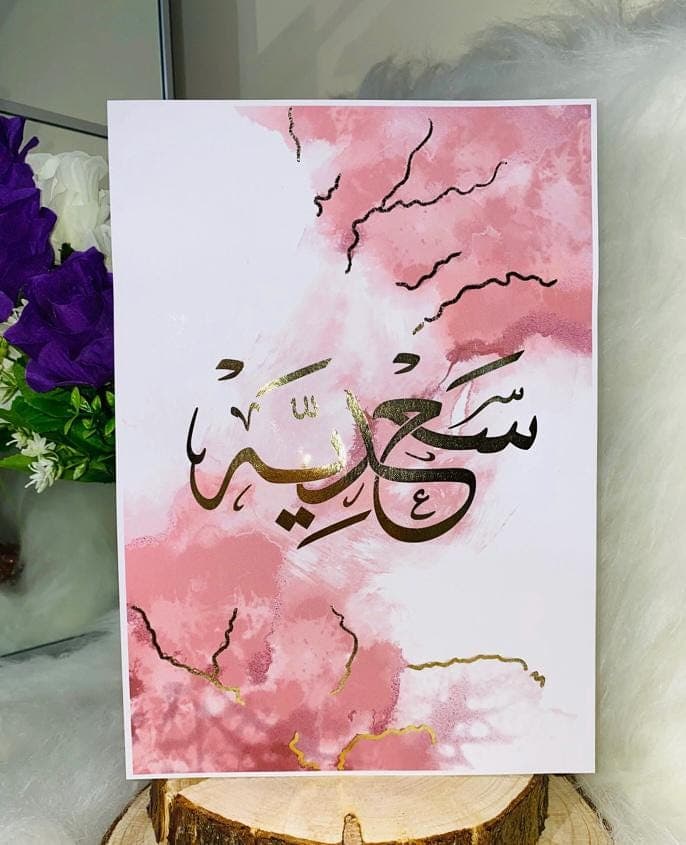 سَعْدِيَّهْ